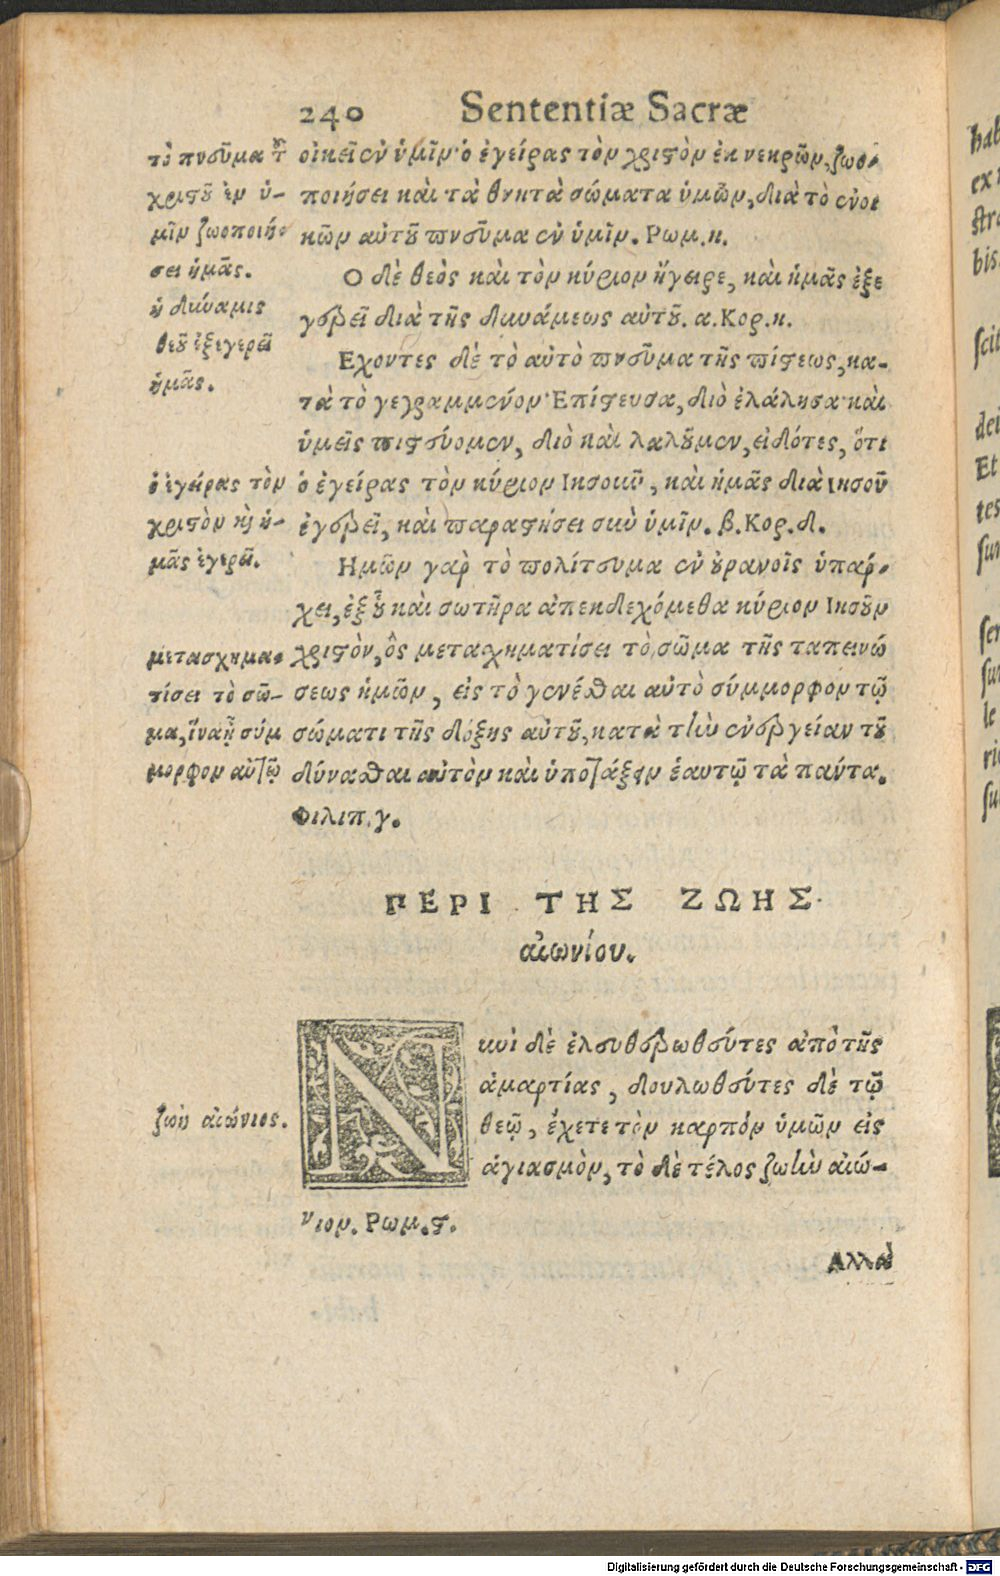 240 Sententiæ Sacræ
τὸ πνεῦμα τοῦ
χριστοῦ ἐν ὑ-
μῖν ζωοποιή-
σει ἡμᾶς.
ἡ δύναμις
θεοῦ ἐξεγερεῖ
ἡμᾶς.
ὁ ἐγείρας τὸν
χριστὸν καὶ ἡ-
μᾶς ἐγερεῖ.
μετασχημα-
τίσει τὸ σῶ-
μα, ἵνα ᾖ σύμ
μορφον αὐτῷ
οἰκεῖ ἐν ὑμῖν· ὁ ἐγείρας τὸν χριστὸν ἐκ νεκρῶν, ζωο-
ποιήσει καὶ τὰ θνητὰ σώματα ὑμῶν, διὰ τὸ ἐνοι
κῶν αὐτοῦ πνεῦμα ἐν ὑμῖν. Ρωμ. η.
Ο δὲ θεὸς καὶ τὸν κύριον ἤγειρε, καὶ ἡμᾶς ἐξε
γερεῖ διὰ τῆς δυνάμεως αὐτοῦ. α. Κορ. η.
Εχοντες δὲ τὸ αὐτὸ πνεῦμα τῆς πίστεως, κα-
τὰ τὸ γεγραμμένον· Επίστευσα, διὸ ἐλάλησα· καὶ
ὑμεῖς πιστεύομεν, διὸ καὶ λαλοῦμεν, εἰδότες, ὅτι
ὁ ἐγείρας τὸν κύριον Ιησοιῦ, καὶ ἡμᾶς διὰ Ιησοῦ
ἐγερεῖ, καὶ παραστήσει σὺν ὑμῖν. β. Κορ. δ.
Ημῶν γὰρ τὸ πολίτευμα ἐν οὐρανοῖς ὑπάρ-
χει, ἐξ οὗ καὶ σωτῆρα ἀπεκδεχόμεθα κύριον Ιησοῦν
χριστὸν, ὃς μετασχηματίσει τὸ σῶμα τῆς ταπεινώ
σεως ἡμῶν, εἰς τὸ γενέσθαι αὐτὸ σύμμορφον τῷ
σώματι τῆς δόξης αὐτοῦ, κατὰ τὴν ἐνέργειαν τοῦ
δύνασθαι αὐτὸν καὶ ὑποτάξαι ἑαυτῷ τὰ πάντα.
Φιλιπ. γ.
ΠΕΡΙ ΤΗΣ ΖΩΗΣ
αἰωνίου.
ζωὴ αἰώνιος.
Νυνὶ δὲ ἐλευθερωθέντες ἀπὸ τῆς
ἁμαρτίας, δουλωθέντες δὲ τῷ
θεῷ, ἔχετε τὸν καρπὸν ὑμῶν εἰς
ἁγιασμὸν, τὸ δὲ τέλος ζωὴν αἰώ-
νιον. Ρωμ. ϛ.
Αλλὰ
Digitalisierung gefördert durch die Deutsche Forschungsgemeinschaft - DFG